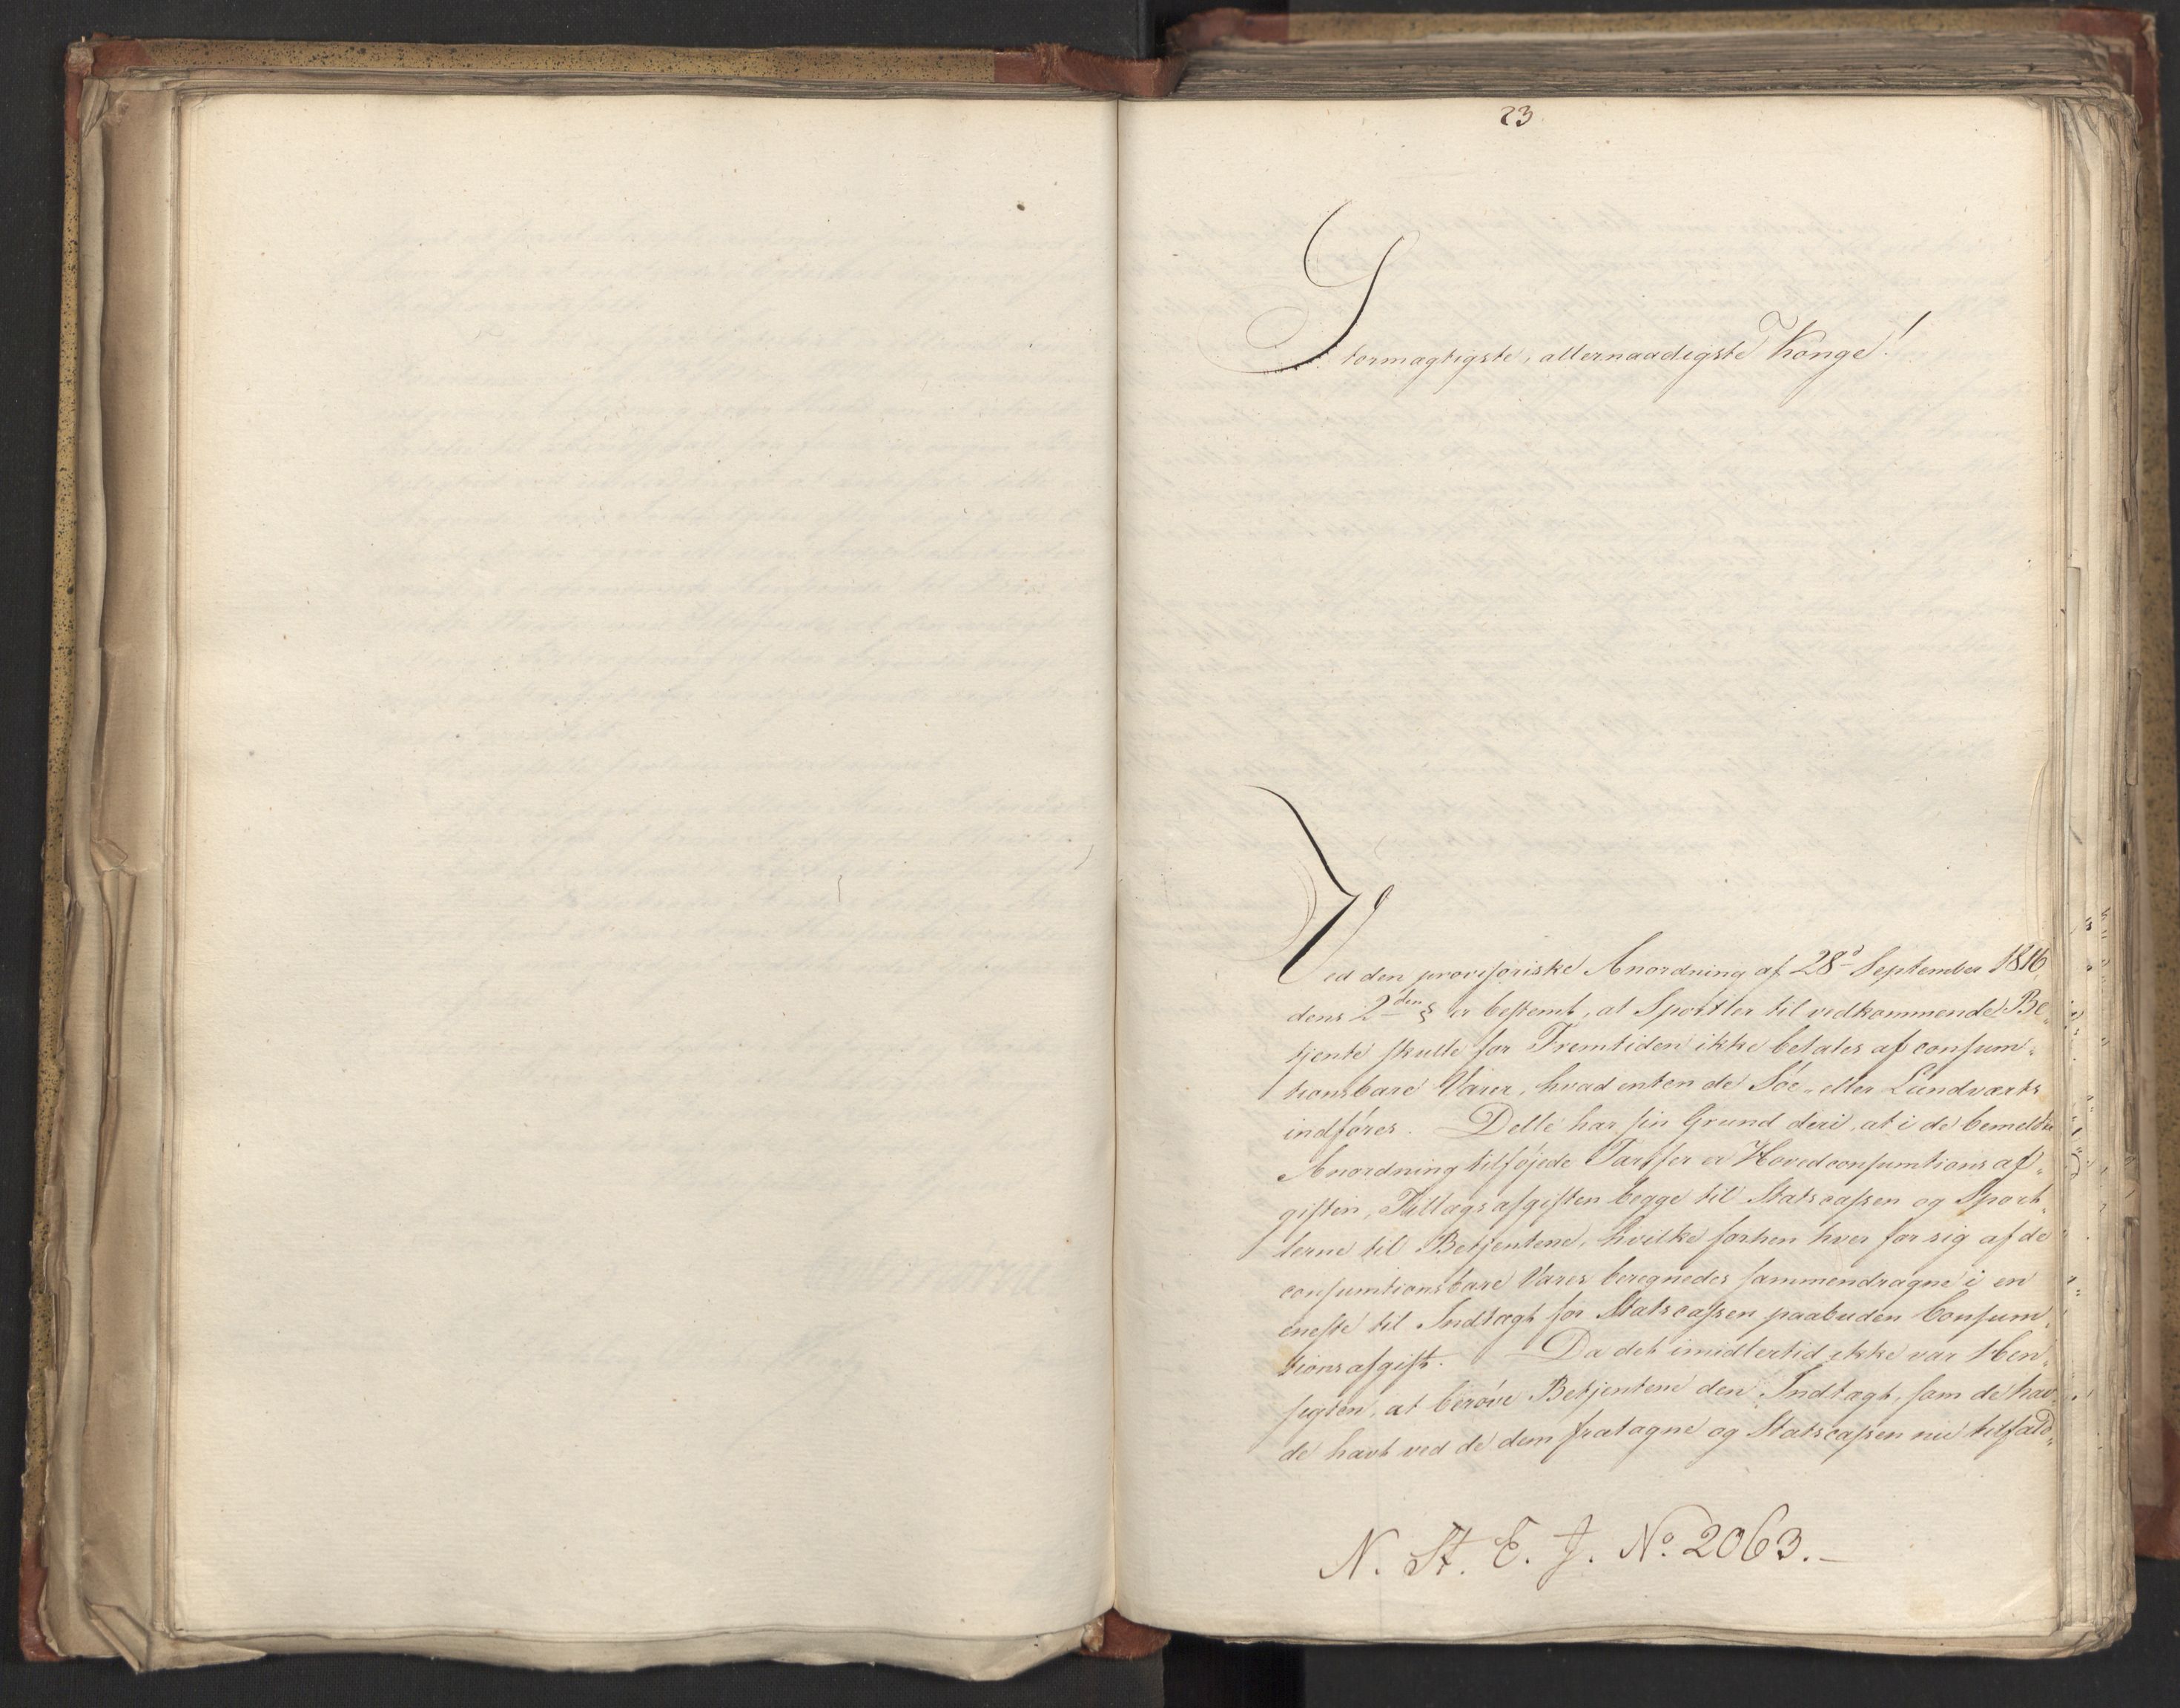 23
Stormægtigste, allernaadigste Konge!
Ved den provisoriske Anordning af 28d September 1816,
dens 2den § er bestemt, at Sportler til vedkommende Be„
tjente skulle for Fremtiden ikke betales af consum„
tionsbare Varer, hvad enten de Søe- eller Landværts
indføres. Dette har sin Grund deri, at i de bemeldte
Anordning tilføjede Tariffer er Hovedconsumtionsaf„
giften, Tillægsafgiften begge til Statscassen og Sport„
lerne til Betjentene, hvilke forhen hver for sig af de
consumtionsbare Varer beregnedes sammendragne i en
eneste til Indtægt for Statscassen paabuden Consum„
tionsafgift. Da det imidlertid ikke var Hen„
sigten, at berøve Betjentene den Indtægt, som de hav„
de havt ved de dem fratagne og Statscassen nu tilfald„
N. St. E. J. No. 2063.–